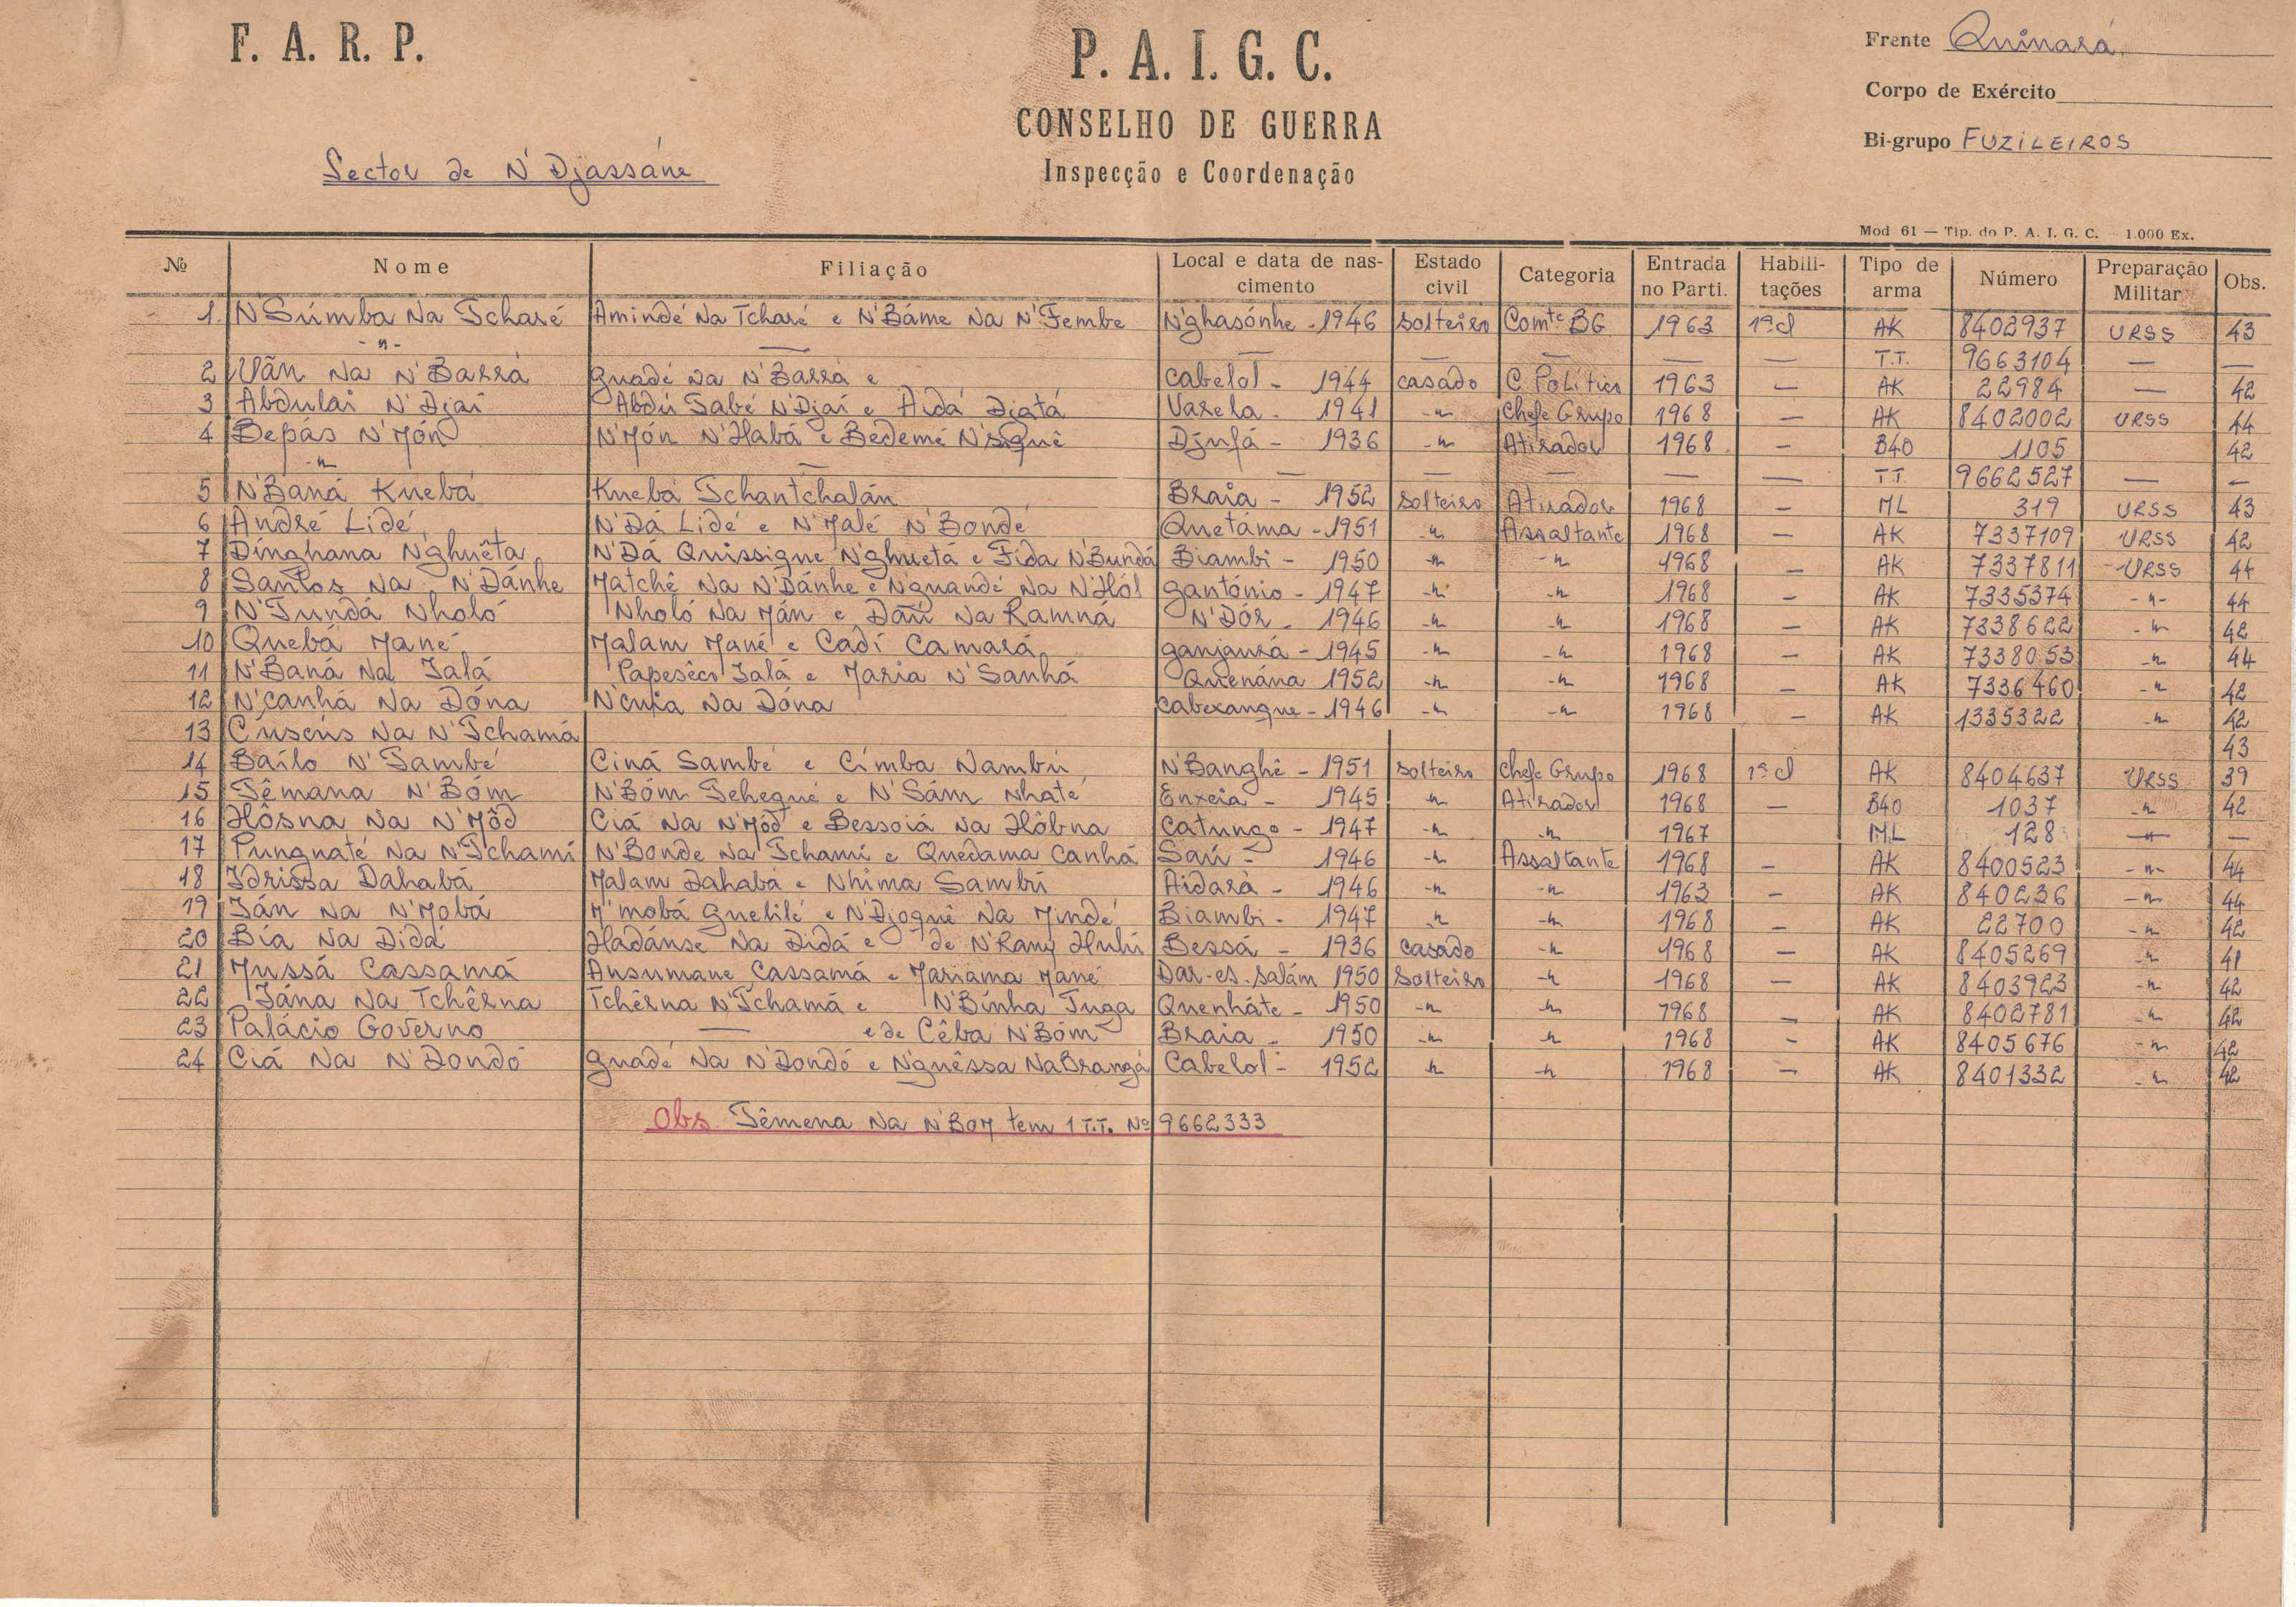 F. A. R. P.
P. A. I. G. C.
CONSELHO DE GUERRA
Inspecção e Coordenação
Frente Quinará
Corpo de Exército
Bi-grupo FUZILEIROS
Sector de N'Djassáne
Mod 61 — Tip. do P. A. I. G. C. — 1.000 Ex.
Nº Nome Filiação Local e data de nascimento Estado civil Categoria Entrada no Parti. Habilitações Tipo de arma Número Preparação Militar Obs.
1 N'Súmba Na Tcharé Amindé Na Tcharé e N'Báme Na N'Fembe N'ghasónhe - 1946 solteiro Comte BG 1963 1ª cl AK 8402937 URSS 43
-"- — — — — — — T.T. 9663104 — —
2 Vãn Na N'Barrá guadé Na N'Barra e Cabelol - 1944 casado C. Politico 1963 — AK 22984 — 42
3 Abdulai N'Djai Abdú Sabé N'Djaí e Aidá Djatá Varela - 1941 -"- Chefe Grupo 1968 — AK 8402002 URSS 44
4 Bepás N'Món N'Món N'Habá e Bedemé N'siguê Djufá - 1936 -"- Atirador 1968 — B40 1105 42
-"- — — — — — — T.T. 9662527 — —
5 N'Baná Knebá Knebá Tchantchalán Braia - 1952 solteiro Atirador 1968 — ML 319 URSS 43
6 André Lidé N'Dá Lidé e N'Malé N'Bondé Quetáma - 1951 -"- Assaltante 1968 — AK 7337109 URSS 42
7 Dinghana N'ghuêta N'Dá Quissigue N'ghuetá e Fida N'Bundá Biambi - 1950 -"- -"- 1968 — AK 7337811 URSS 44
8 Santos Na N'Dánhe Matchê Na N'Dánhe e N'guandé Na N'Hól gantónio - 1947 -"- -"- 1968 — AK 7335374 -"- 44
9 N'Tundá Nholó Nholó Na Mán e Daú Na Ramná N'Dór - 1946 -"- -"- 1968 — AK 7338622 -"- 42
10 Quebá Mané Malam Mané e Cadí Camará ganjaurá - 1945 -"- -"- 1968 — AK 7338053 -"- 44
11 N'Baná Na Ialá Papesêco Ialá e Maria N'Sanhá Quenána 1952 -"- -"- 1968 — AK 7336460 -"- 42
12 N'canhá Na Dóna N'cuia Na Dóna Cabexangue - 1946 -"- -"- 1968 — AK 1335322 -"- 42
13 Cúseiís Na N'Tchamá 43
14 Baílo N'Sambé Ciná Sambé e Címba Nambú N'Banghê - 1951 solteiro Chefe Grupo 1968 1ª cl AK 8404637 URSS 39
15 Têmana N'Bóm N'Bóm Tchegué e N'Sám Nhaté Enxeia - 1945 -"- Atirador 1968 — B40 1037 -"- 42
16 Hôsna Na N'Môd Ciá Na N'Môd e Bessoiá Na Hôbna Catungo - 1947 -"- -"- 1967 ML 128 -"- —
17 Pungnaté Na N'Tchamí N'Bonde Na Tchamí e Quêdama Canhá Saú - 1946 -"- Assaltante 1968 — AK 8400523 -"- 44
18 Idrissa Dahabá Malam Dahabá e Nhima Sambú Aidará - 1946 -"- -"- 1963 — AK 840236 -"- 44
19 Ián Na N'Mobá M'mobá guelilé e N'Djoguê Na Mindé Biambi - 1947 -"- -"- 1968 — AK 22700 -"- 42
20 Bía Na Didá Hadánse Na Didá e de N'Ramy Hulú Bessá - 1936 casado -"- 1968 — AK 8405269 -"- 41
21 Mussá Cassamá Ansumane Cassamá e Mariama Mané Dar-es-salám 1950 solteiro -"- 1968 — AK 8403923 -"- 42
22 Iána Na Tchêrna Tchêrna N'Tchamá e N'Bínha Tuga Quenháte - 1950 -"- -"- 1968 — AK 8402781 -"- 42
23 Palácio Governo — e de Cêba N'Bóm Braia - 1950 -"- -"- 1968 — AK 8405676 -"- 42
24 Ciá Na N'Dondó guadé Na N'Dondó e N'guêssa Na Brangá Cabelol - 1952 -"- -"- 1968 — AK 8401332 -"- 42
Obs Têmena Na N'Bom tem 1 T.T. Nº 9662333